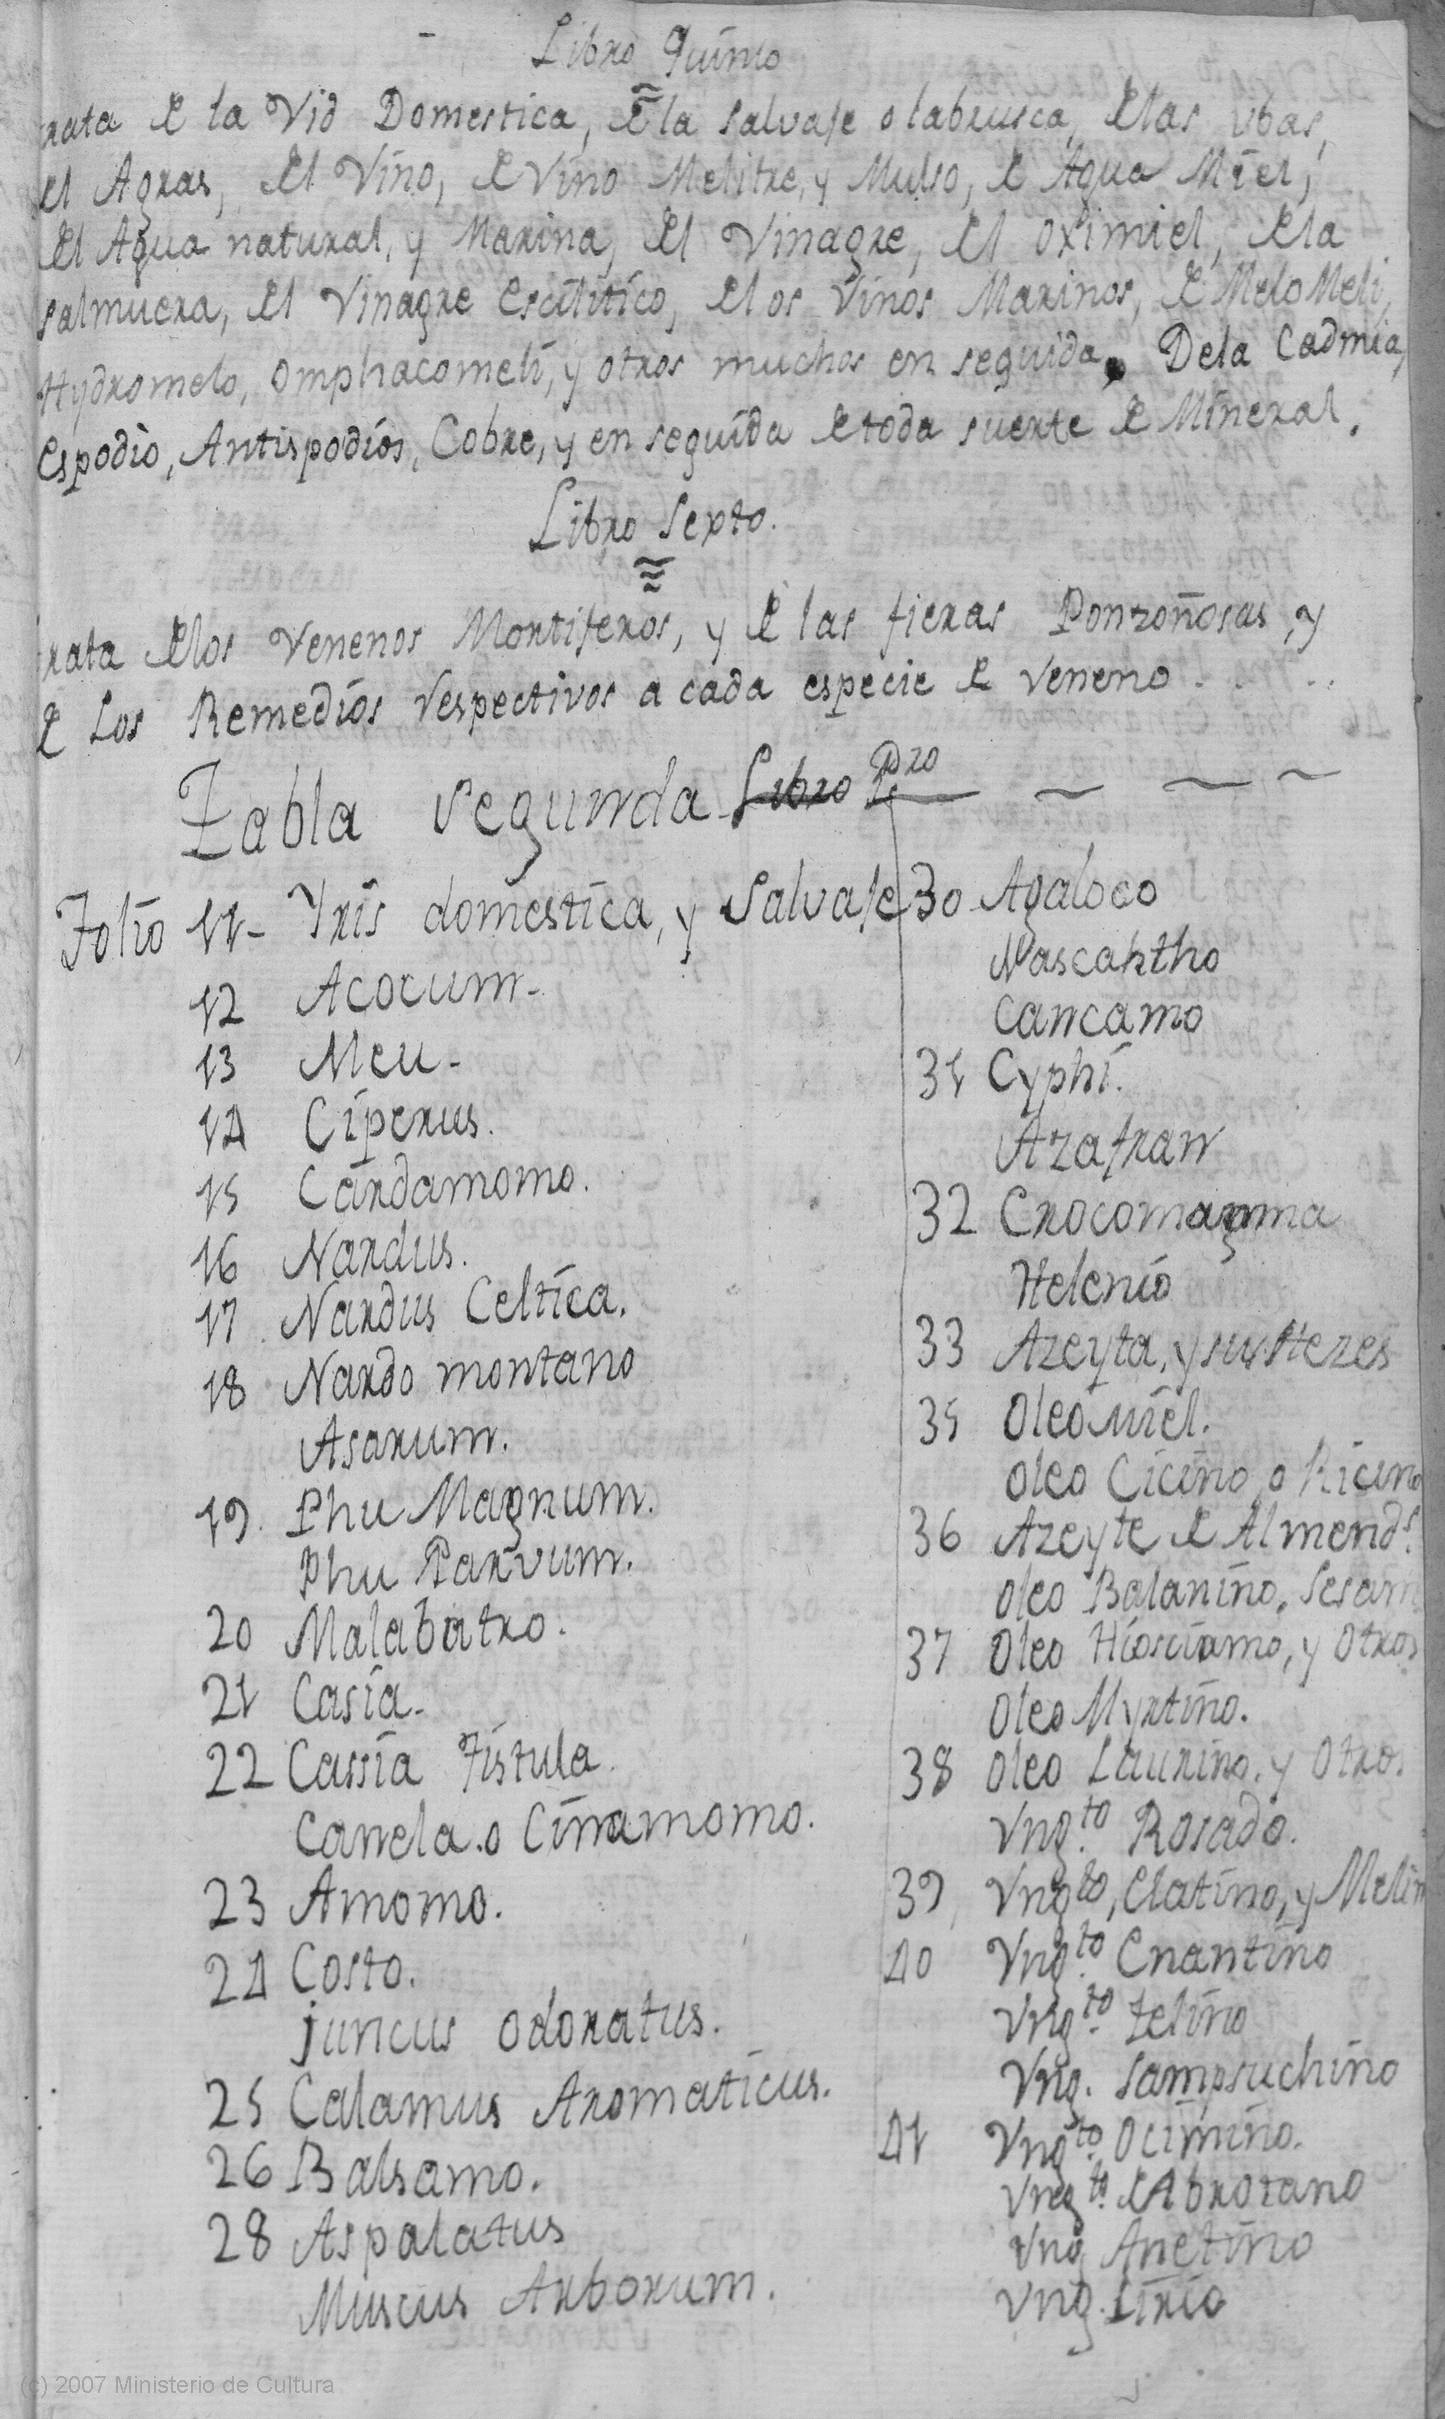 Libro Quinto
trata de la Vid Domestica, de la Salvaje o labrusca, de las ubas,
del Agras, del Vino, de Vino Melitre, y Mulso, de Agua Miel,
del Agua natural, y Marina, del Vinagre, del Oximiel, de la
salmuera, del Vinagre Escilitico, de los Vinos Marinos, de Melo Meli,
Hydromelo, Omphacomeli, y otros muchos en seguida. De la Cadmia,
Espodio, Antispodios, Cobre, y en seguida de toda suerte de Mineral.
Libro Sexto.
trata de los Venenos Mortiferos, y de las fieras Ponzoñosas, y
de Los Remedios respectivos a cada especie de Veneno . . . .
Tabla Segunda Libro Pro
Folio 11- Yris domestica, y Salvaje
12 Acorum-
13 Meu-
14 Ciperus.
15 Cardamomo.
16 Nardus.
17 Nardus Celtica.
18 Nardo montano
Asarum.
19. Phu Magnum.
Phu Parvum.
20 Malabatro.
21 Casia-
22 Cassia Fistula.
Canela. o Cinamomo.
23 Amomo.
24 Costo.
juncus Odoratus.
25 Calamus Aromaticus.
26 Balsamo.
28 Aspalatus
Muscus Arborum.
30 Agaloco
Nascahtho
Cancamo
31 Cyphi.
Azafran
32 Crocomagma
Helenio
33 Azeyta, y sus Hezes
35 Oleo Miel.
Oleo Cicino, o Ricino
36 Azeyte de Almends.
Oleo Balanino, Sesam
37 Oleo Hiosciamo, y Otros
Oleo Myrtino.
38 Oleo Laurino, y Otros
Vngto. Rosado.
39 Vngto, Elatino, y Melin
40 Vngto. Enantino
Vngto. Telino
Vng. Sampsuchino
41 Vngto. Ocimino.
Vngto. de Abrotano
Vng Anetino
Vng. Lirio